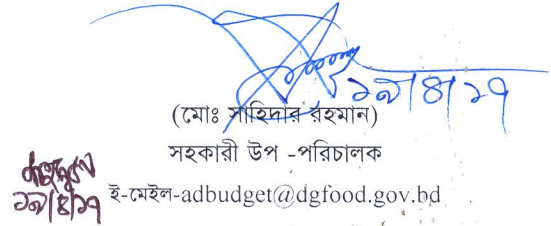 ১৯/৪/১৭
(মোঃ সাহিদার রহমান)
সহকারী উপ -পরিচালক
১৯/৪/১৭
ই-মেইল-adbudget@dgfood.gov.bd